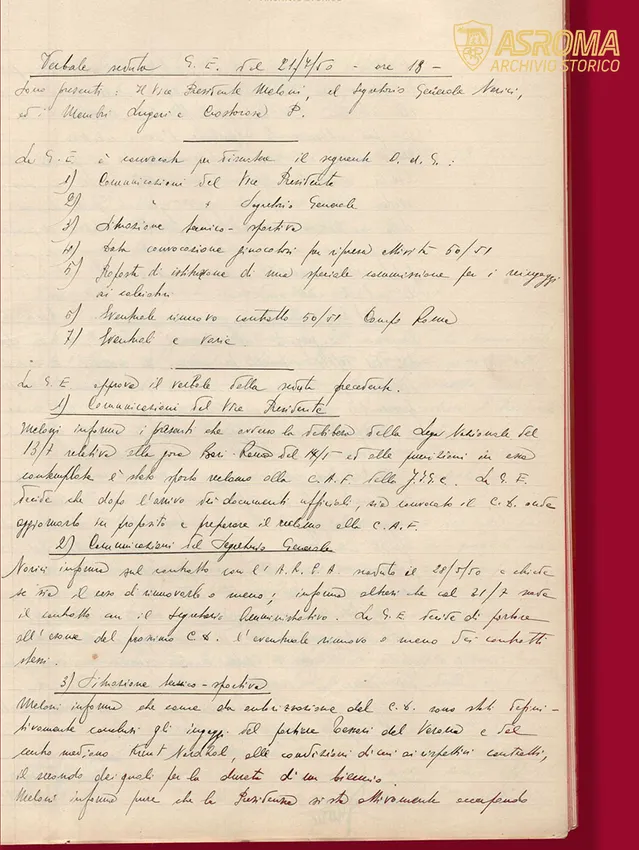 ASROMA
ARCHIVIO STORICO
Verbale seduta G. E. del 21/7/50 - ore 18 -
Sono presenti: Il Vice Presidente Meloni, il Segretario Generale Nerici,
ed i Membri Lugari e Crostarosa P.
La G. E. è convocata per discutere il seguente O. d. G.:
1) Comunicazioni del Vice Presidente
2) " " Segretario Generale
3) Situazione tecnico-sportiva
4) Data convocazione giuocatori per ripresa attività 50/51
5) Proposta di istituzione di una speciale commissione per i reingaggi
ai calciatori
6) Eventuale rinnovo contratto 50/51 Campo Roma
7) Eventuali e varie.
La G. E. approva il verbale della seduta precedente.
1) Comunicazioni del Vice Presidente
Meloni informa i presenti che avverso la delibera della Lega Nazionale del
13/7 relativa alla gara Bari-Roma del 14/5 ed alle punizioni in essa
contemplate è stato sporto reclamo alla C.A.F. della F.I.G.C. La G.E.
decide che dopo l'arrivo dei documenti ufficiali, sia convocato il C.D. onde
aggiornarlo in proposito e preparare il reclamo alla C.A.F.
2) Comunicazioni del Segretario Generale
informa sul contratto con l'A.R.P.A. scaduto il 28/5/50 e chiede
se sia il caso di rinnovarlo o meno; informa altresì che col 21/7 scade
il contratto con il Segretario Amministrativo. La G.E. decide di portare
all'esame del prossimo C.D. l'eventuale rinnovo o meno dei contratti
stessi.
3) Situazione tecnico-sportiva
Meloni informa che come da autorizzazione del C.D. sono stati defini-
tivamente conclusi gli ingaggi del portiere Tessari del Verona e del
centro mediano Knut Nordhal, alle condizioni di cui ai rispettivi contratti,
il secondo dei quali per la durata di un biennio.
Meloni informa pure che la Presidenza si sta attivamente occupando